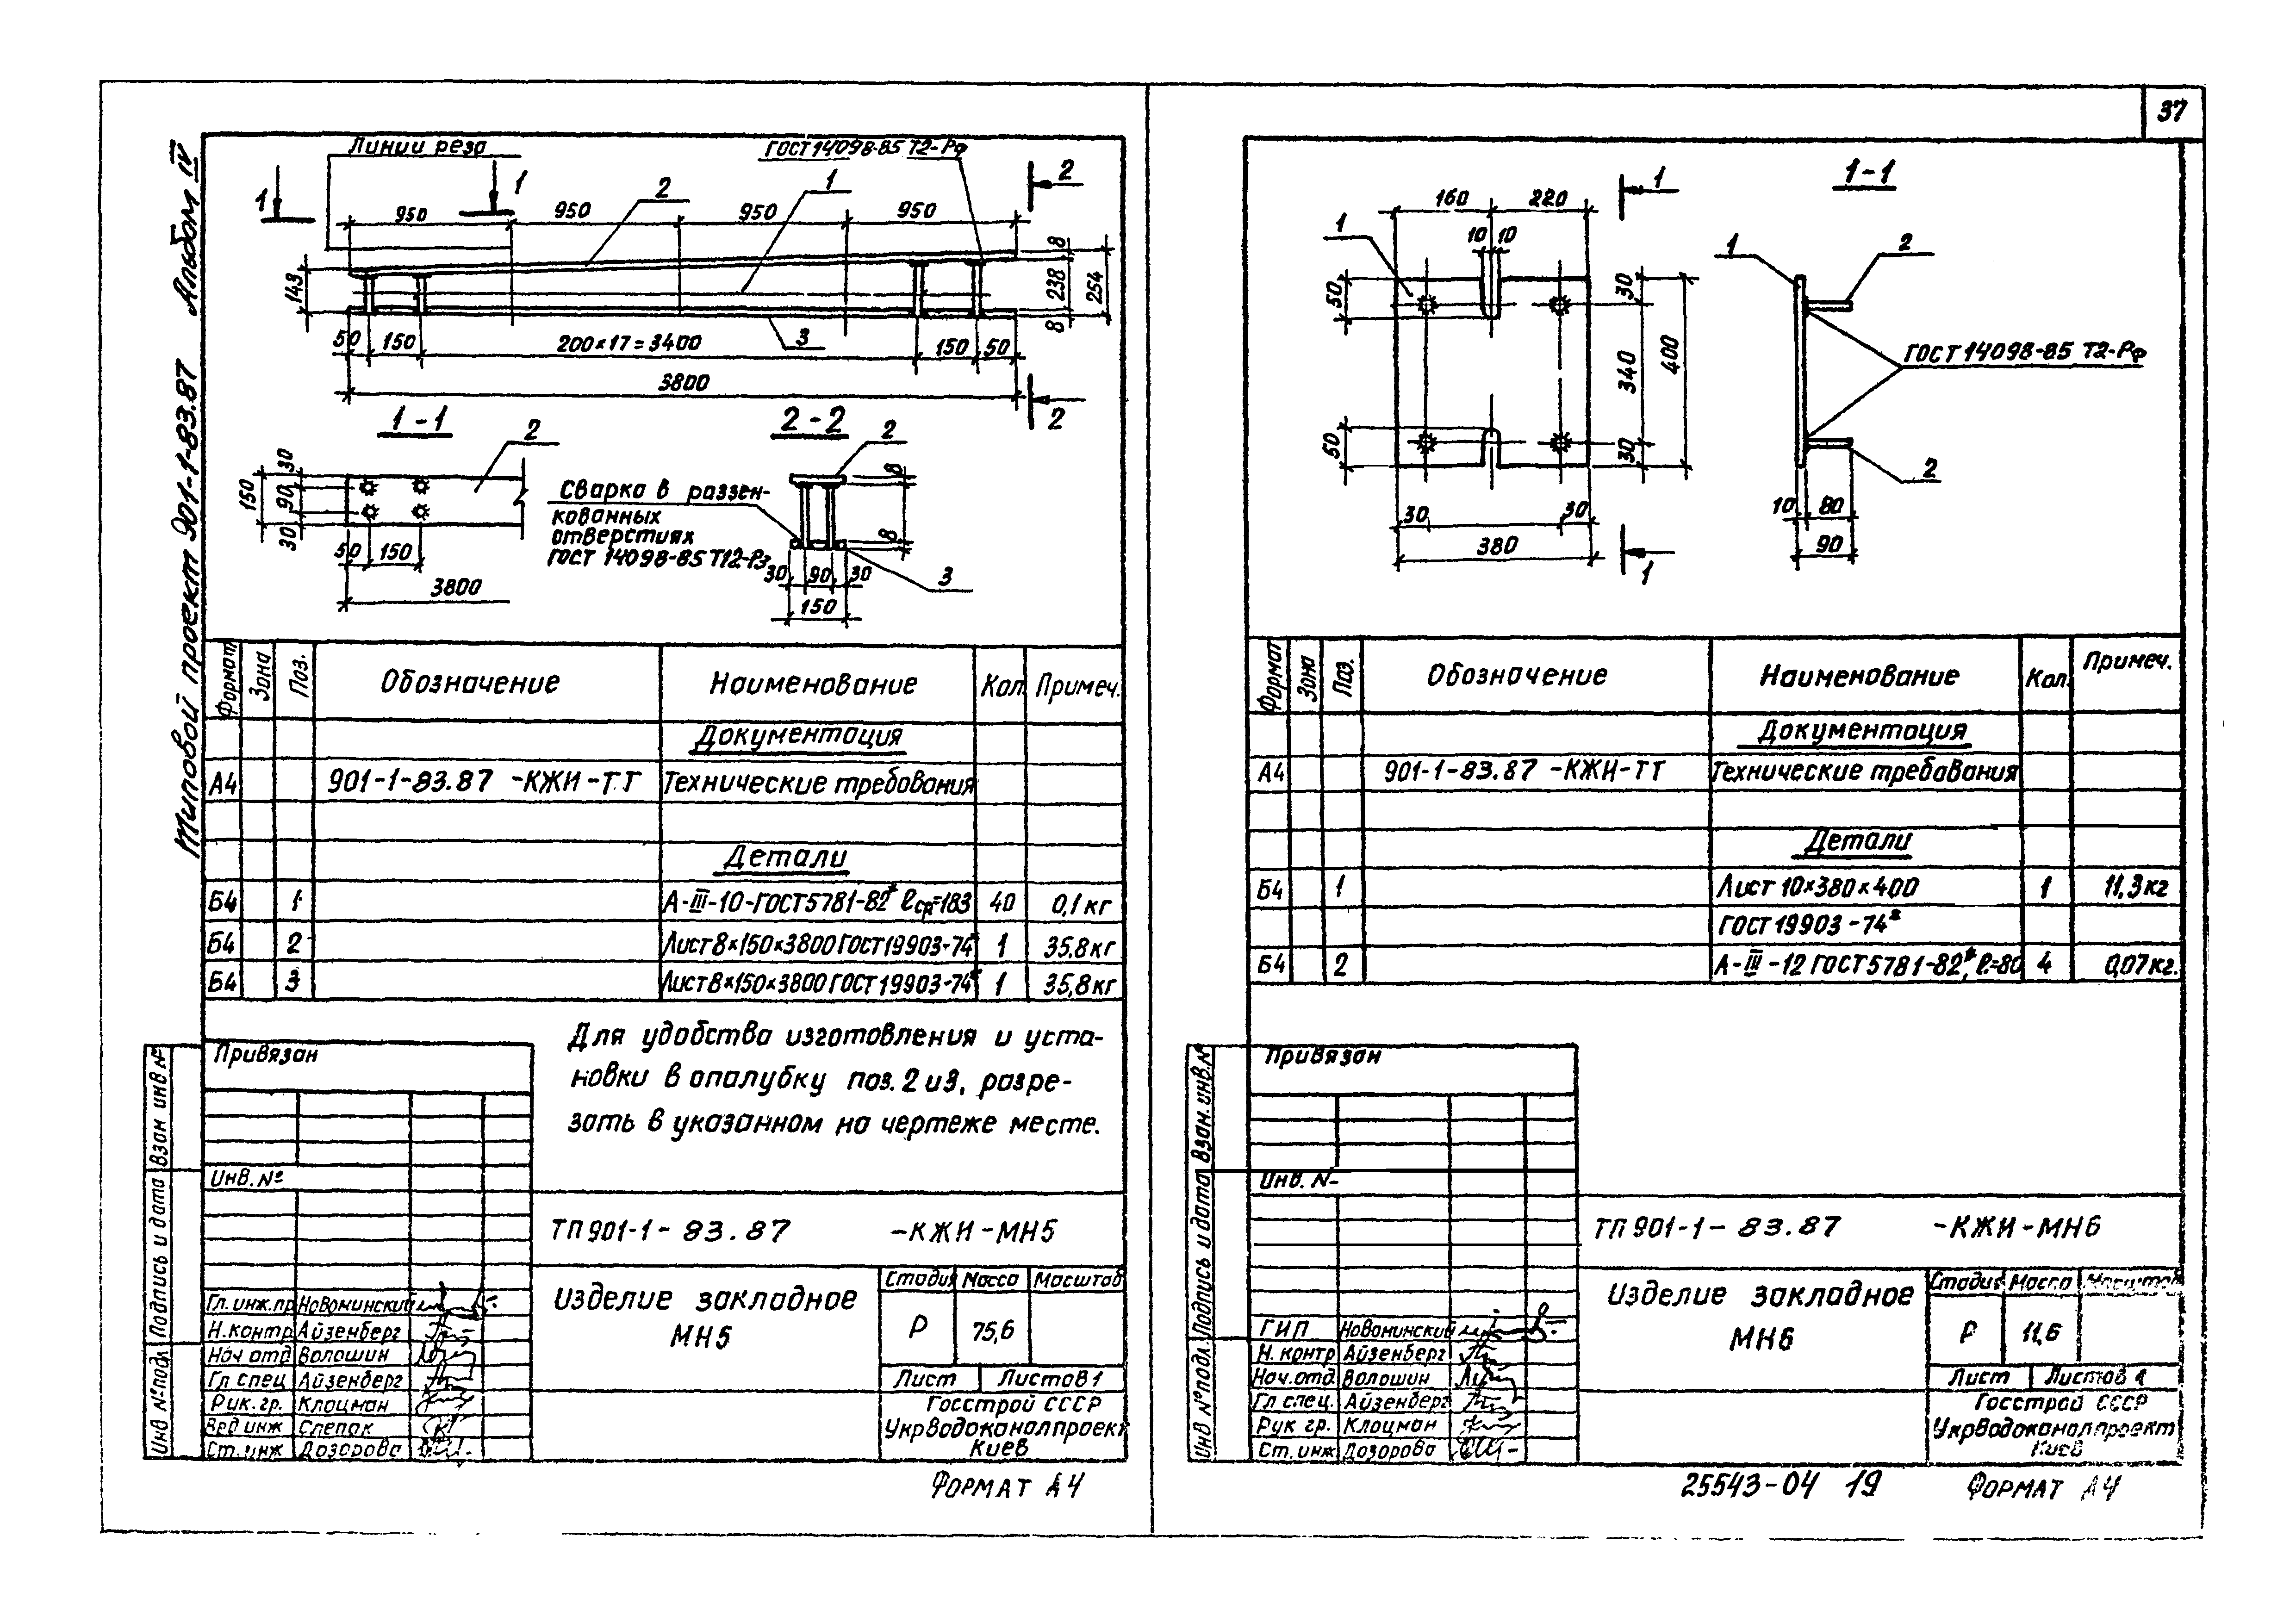 37
Типовой проект 901-1-83.87 Альбом IV
Линии реза
ГОСТ 14098-85 Т2-Рф
1 1 2 1 2
950 950 950 950
143
8 238 254 8
50 150 200×17=3400 150 50
3
3800
2
1-1
2
150
30 90 30
50 150
3800
Сварка в раззен-
кованных
отверстиях
ГОСТ 14098-85 Т12-Рз
2-2
2
8
8
30 90 30
150
3
Формат Зона Поз. Обозначение Наименование Кол Примеч.
Документация
А4 901-1-83.87 -КЖИ-ТТ Технические требования
Детали
Б4 1 А-III-10-ГОСТ5781-82* ℓср=183 40 0,1 кг
Б4 2 Лист 8×150×3800 ГОСТ 19903-74* 1 35,8 кг
Б4 3 Лист 8×150×3800 ГОСТ 19903-74* 1 35,8 кг
Для удобства изготовления и уста-
новки в опалубку поз. 2 и 3, разре-
зать в указанном на чертеже месте.
Привязан
Инв. №
Взан инв №
Подпись и дата
Инв № подл.
ТП 901-1-83.87 -КЖИ-МН5
Изделие закладное
МН5
Стадия Масса Масштаб
Р 75,6
Лист Листов 1
Госстрой СССР
Укрводоканалпроект
Киев
Гл. инж. пр Новоминский
Н.контр Айзенберг
Нач отд Волошин
Гл спец Айзенберг
Рук. гр. Клоцман
Вед инж Слепак
Ст. инж Дозорова
Формат А4
160 220
1
1
10 10
50
50
30 340 30
400
30 30
380
1
1-1
1
2
ГОСТ 14098-85 Т2-Рф
2
10 80
90
Формат Зона Поз. Обозначение Наименование Кол. Примеч.
Документация
А4 901-1-83.87 -КЖИ-ТТ Технические требования
Детали
Б4 1 Лист 10×380×400 1 11,3 кг
ГОСТ 19903-74*
Б4 2 А-III-12 ГОСТ 5781-82*, ℓ=80 4 0,07 кг.
Привязан
Инв. №
Взан. инв. №
Подпись и дата
Инв № подл.
ТП 901-1-83.87 -КЖИ-МН6
Изделие закладное
МН6
Стадия Масса Масштаб
Р 11,6
Лист Листов 1
Госстрой СССР
Укрводоканалпроект
Киев
ГИП Новоминский
Н. контр Айзенберг
Нач. отд Волошин
Гл спец. Айзенберг
Рук гр. Клоцман
Ст. инж Дозорова
25543-04 19
Формат А4